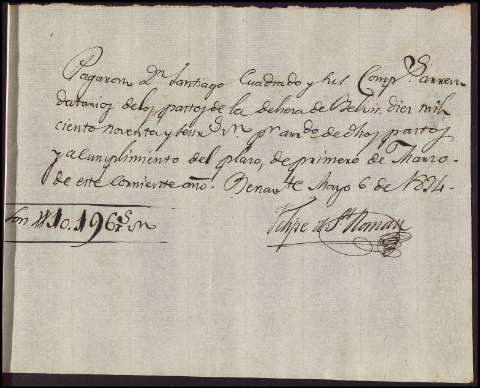 Pagaron Dn Santiago Cuadrado y sus Comps. arren
datarios de los pastos de la dehesa de Belvis, diez mil
ciento noventa y seis rs. vn pr arrdo de dhos pastos
y al cumplimiento del plazo, de primero de Marzo
de este corriente año. Benavte Mayo 6 de 1824.
Son 10.196 rs vn
Felipe de Sn Roman